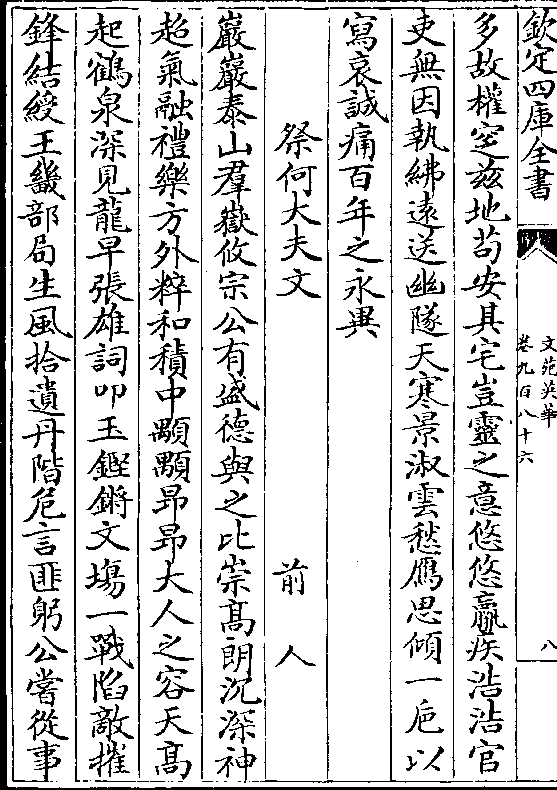 欽定四庫全書
文苑英華
卷九百八十六
八
多故權窆兹地茍安其宅豈靈之意悠悠羸疾浩浩官
吏無因執紼遠送幽隧天寒景淑雲愁鴈思傾一巵以
寫哀誠痛百年之永異
祭何大夫文 前人
巖巖泰山羣嶽攸宗公有盛德與之比崇髙朗沉深神
超氣融禮樂方外粹和積中顒顒昂昂大人之容天髙
起鶴泉深見龍早張雄詞叩玉鏗鏘文塲一戰陷敵摧
鋒結綬王畿部局生風拾遺丹階危言匪躬公嘗從事